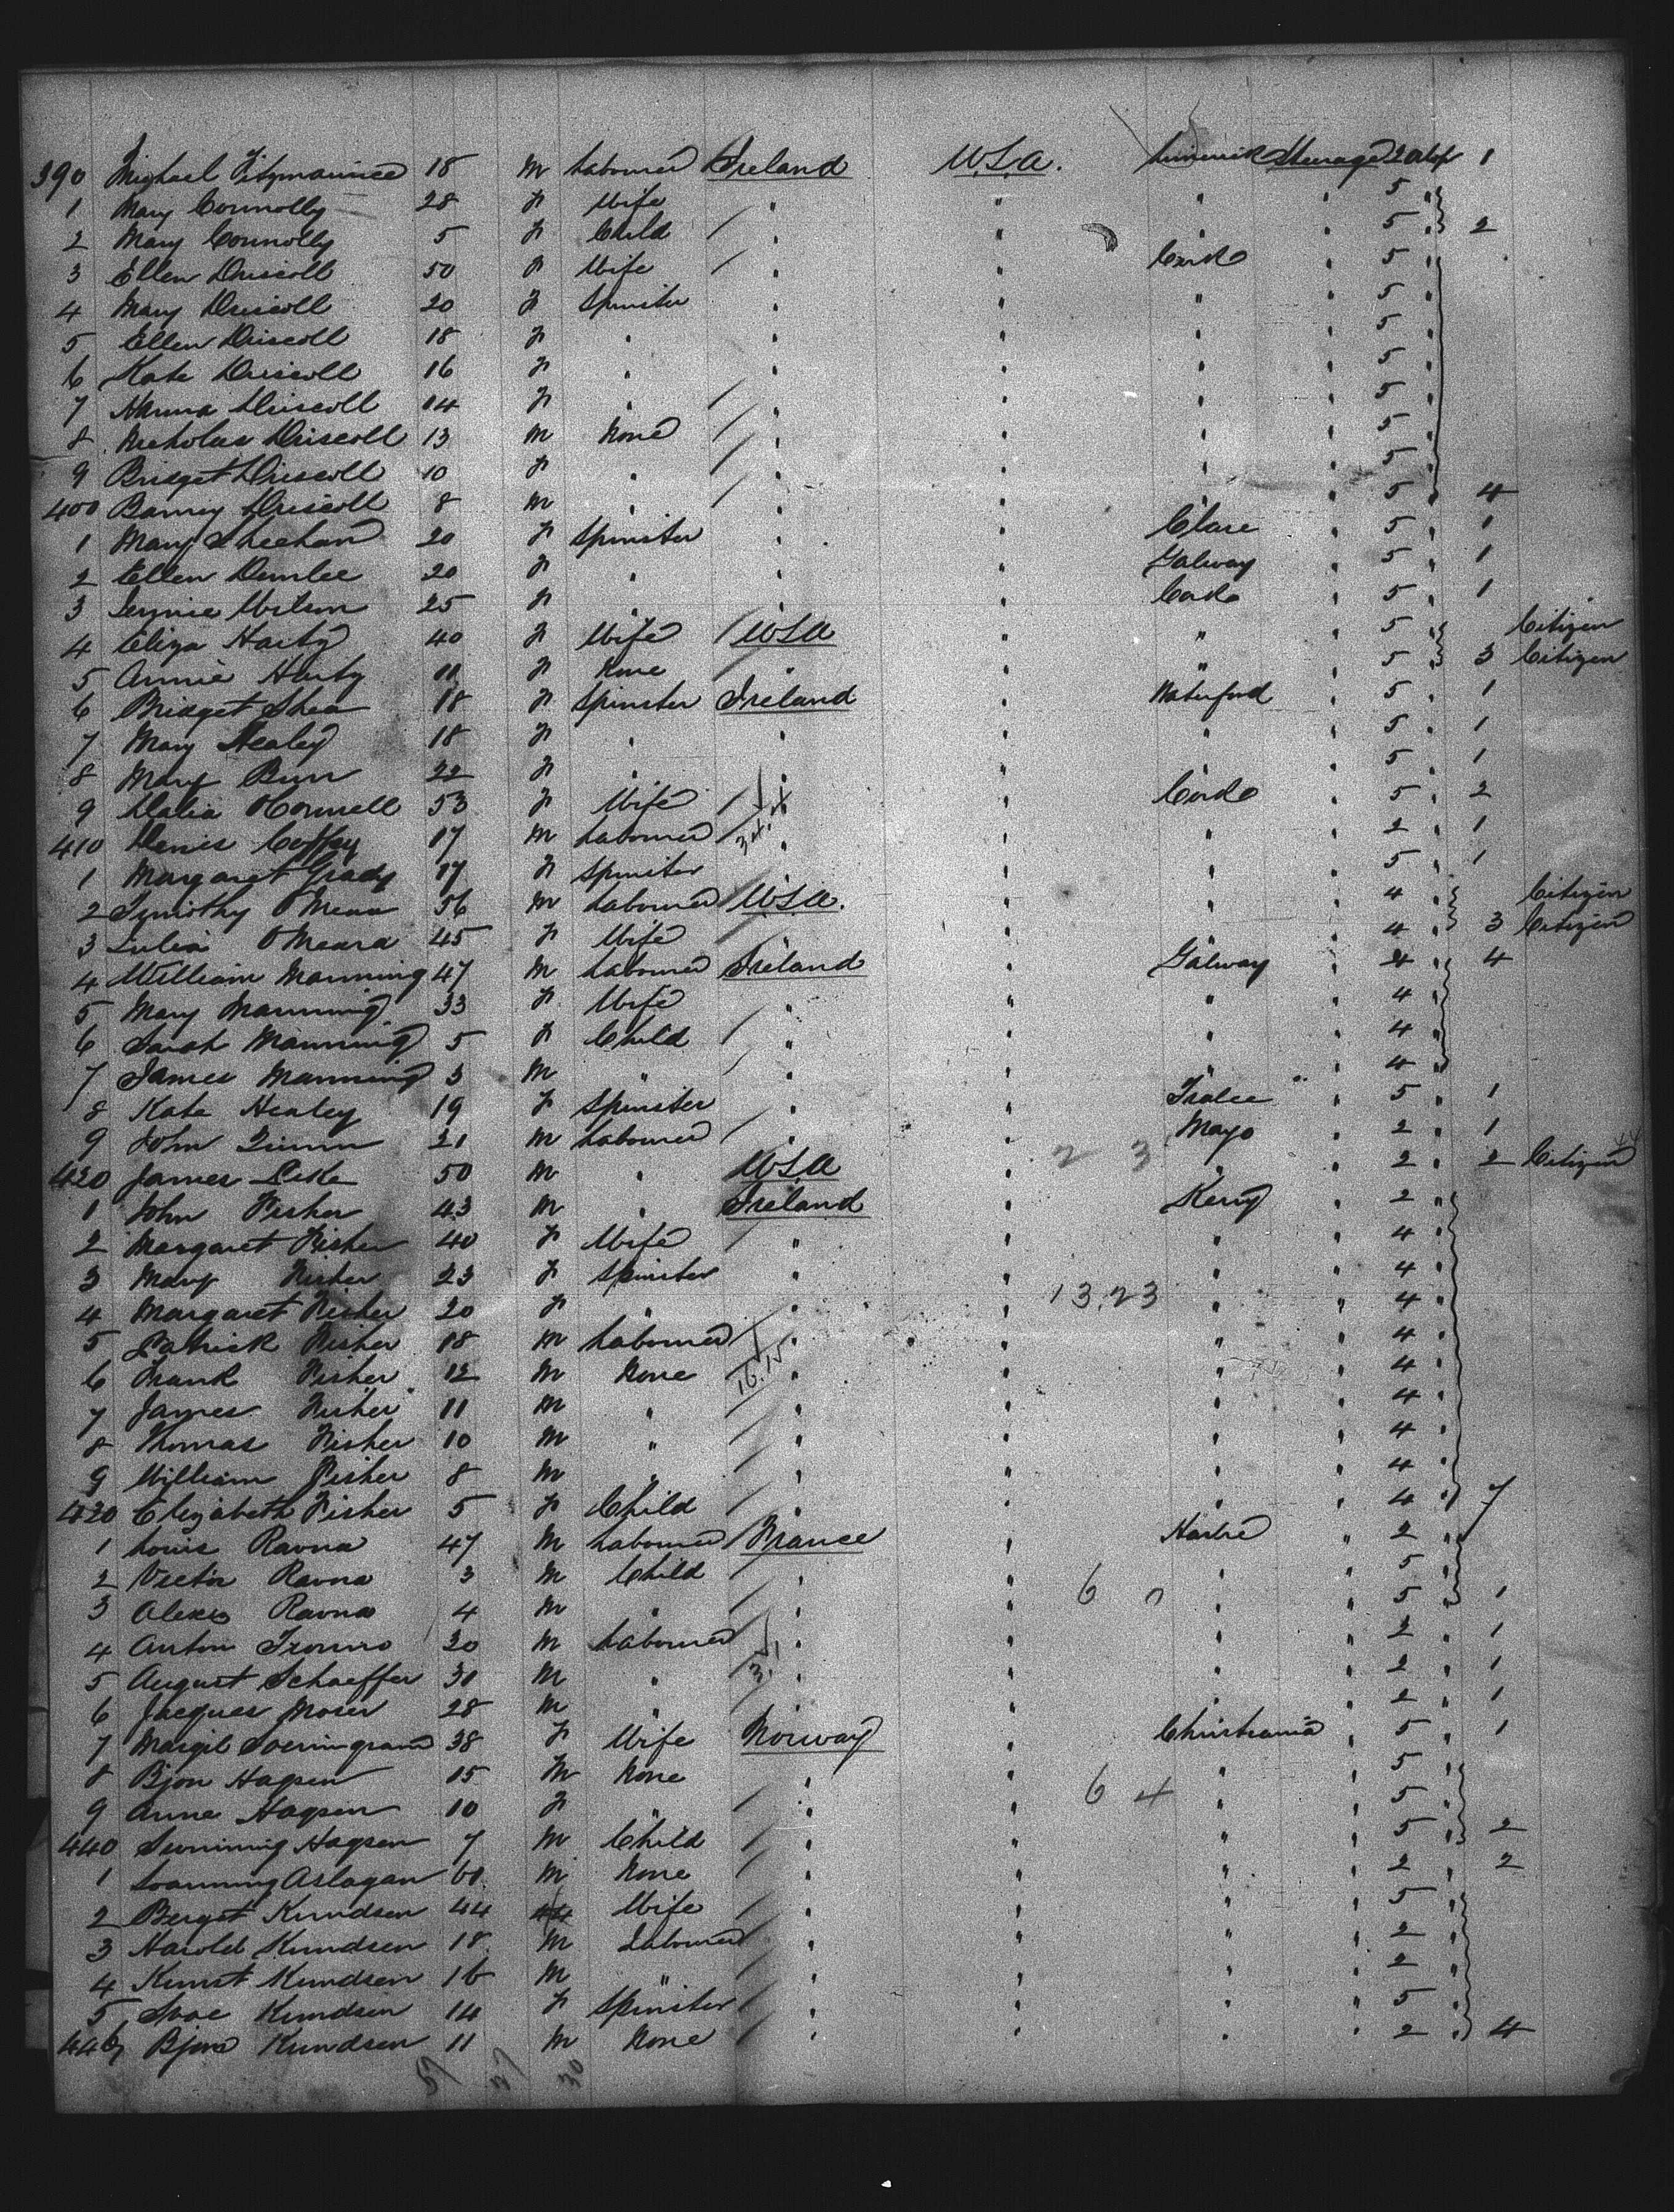 390 Michael Fitzmaurice 18 M Labourer Ireland U.S.A. Limerick Steerage 2 1
1 Mary Connolly 28 F Wife " " " " 5 "
2 Mary Connolly 5 F Child " " " 5 " 2
3 Ellen Driscoll 50 F Wife " " Cork " 5 "
4 Mary Driscoll 20 F Spinster " " " " 5 "
5 Ellen Driscoll 18 F " " " " " 5 "
6 Kate Driscoll 16 F " " " " " 5 "
7 Hanna Driscoll 14 F " " " " " 5 "
8 Nicholas Driscoll 13 M None " " " " 5 "
9 Bridget Driscoll 10 F " " " " " 5 "
400 Barney Driscoll 8 M " " " " " 5 " 4
1 Mary Sheehan 20 F Spinster " " Clare " 5 " 1
2 Ellen Dunlee 20 F " " " Galway " 5 " 1
3 Jennie Wilson 25 F " " " Cork " 5 " 1
4 Eliza Harty 40 F Wife U.S.A " " " 5 " Citizen
5 Annie Harty 11 F None " " " " 5 " 3 Citizen
6 Bridget Shea 18 F Spinster Ireland " Waterford " 5 " 1
7 Mary Healey 18 F " " " " " 5 " 1
8 Mary Burr 22 F " " " " " 5 " 1
9 Delia OConnell 53 F Wife " " Cork " 5 " 2
410 Denis Coffey 17 M Labourer " " " " 2 " 1
1 Margaret Grady 17 F Spinster " " " " 5 " 1
2 Timothy O'Meara 56 M Labourer U.S.A. " " " 4 " Citizen
3 Julia OMeara 45 F Wife " " " " 4 " 3 Citizen
4 William Manning 47 M Labourer Ireland " Galway " 4 " 4
5 Mary Manning 33 F Wife " " " " 4 "
6 Sarah Manning 5 F Child " " " " 4 "
7 James Manning 3 M " " " " " 4 "
8 Kate Healey 19 F Spinster " " Tralee " 5 " 1
9 John Quinn 21 M Labourer " " Mayo " 2 " 1
420 James Leke 50 M " U.S.A 2 3 " " 2 " 2 Citizen
1 John Fisher 43 M " Ireland " Kerry " 2 "
2 Margaret Fisher 40 F Wife " " " " 4 "
3 Mary Fisher 23 F Spinster " " " " 4 "
4 Margaret Fisher 20 F " " " 13,23 " " 4 "
5 Patrick Fisher 18 M Labourer " " " " 4 "
6 Frank Fisher 12 M None 16.15 " " " " 4 "
7 James Fisher 11 M " " " " " 4 "
8 Thomas Fisher 10 M " " " " " 4 "
9 William Fisher 8 M " " " " " 4 "
420 Elizabeth Fisher 5 F Child " " " " 4 " 7
1 Louis Ravna 47 M Labourer France " Havre " 2 "
2 Victor Ravna 3 M Child " " " " 5 "
3 Alexis Ravna 4 M " " " 6 0 " " 5 " 1
4 Anton 20 M Labourer " " " " 2 " 1
5 August Schaeffer 30 M " " " " " 2 " 1
6 Jacques Moser 28 M " " " " " 2 " 1
7 Margit 38 F Wife Norway " Christiania " 5 " 1
8 Bjon Hagsen 15 M None " " " " 5 "
9 Anne Hagsen 10 F " " " 6 4 " " 5 "
440 Hagsen 7 M Child " " " " 5 " 2
1 Aslagan 60 M None " " " " 2 " 2
2 Berget Kundsen 44 Wife " " " " 5 "
3 Harold Kundsen 18 M Labourer " " " " 2 "
4 Kunst Kundsen 16 M " " " " " 2 "
5 Kundsen 14 F Spinster " " " " 5 "
446 Bjorn Kundsen 11 M None " " " " 2 " 4
57 27 30